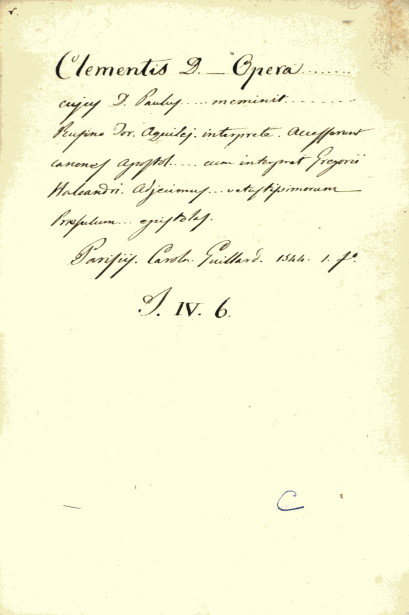 Clementis D. — Opera ........
cujus D. Paulus .... meminit ........
Rufino Tor. Aquilej. interprete. Accesserunt
canones Apostol .... cum interpret Gregorii
Haloandri. Adjecimus ... vetustissimorum
Præsulum ... epistolas.
Parisiis. Carola. Guillard. 1544. 1. fº.
J. IV. 6.
C